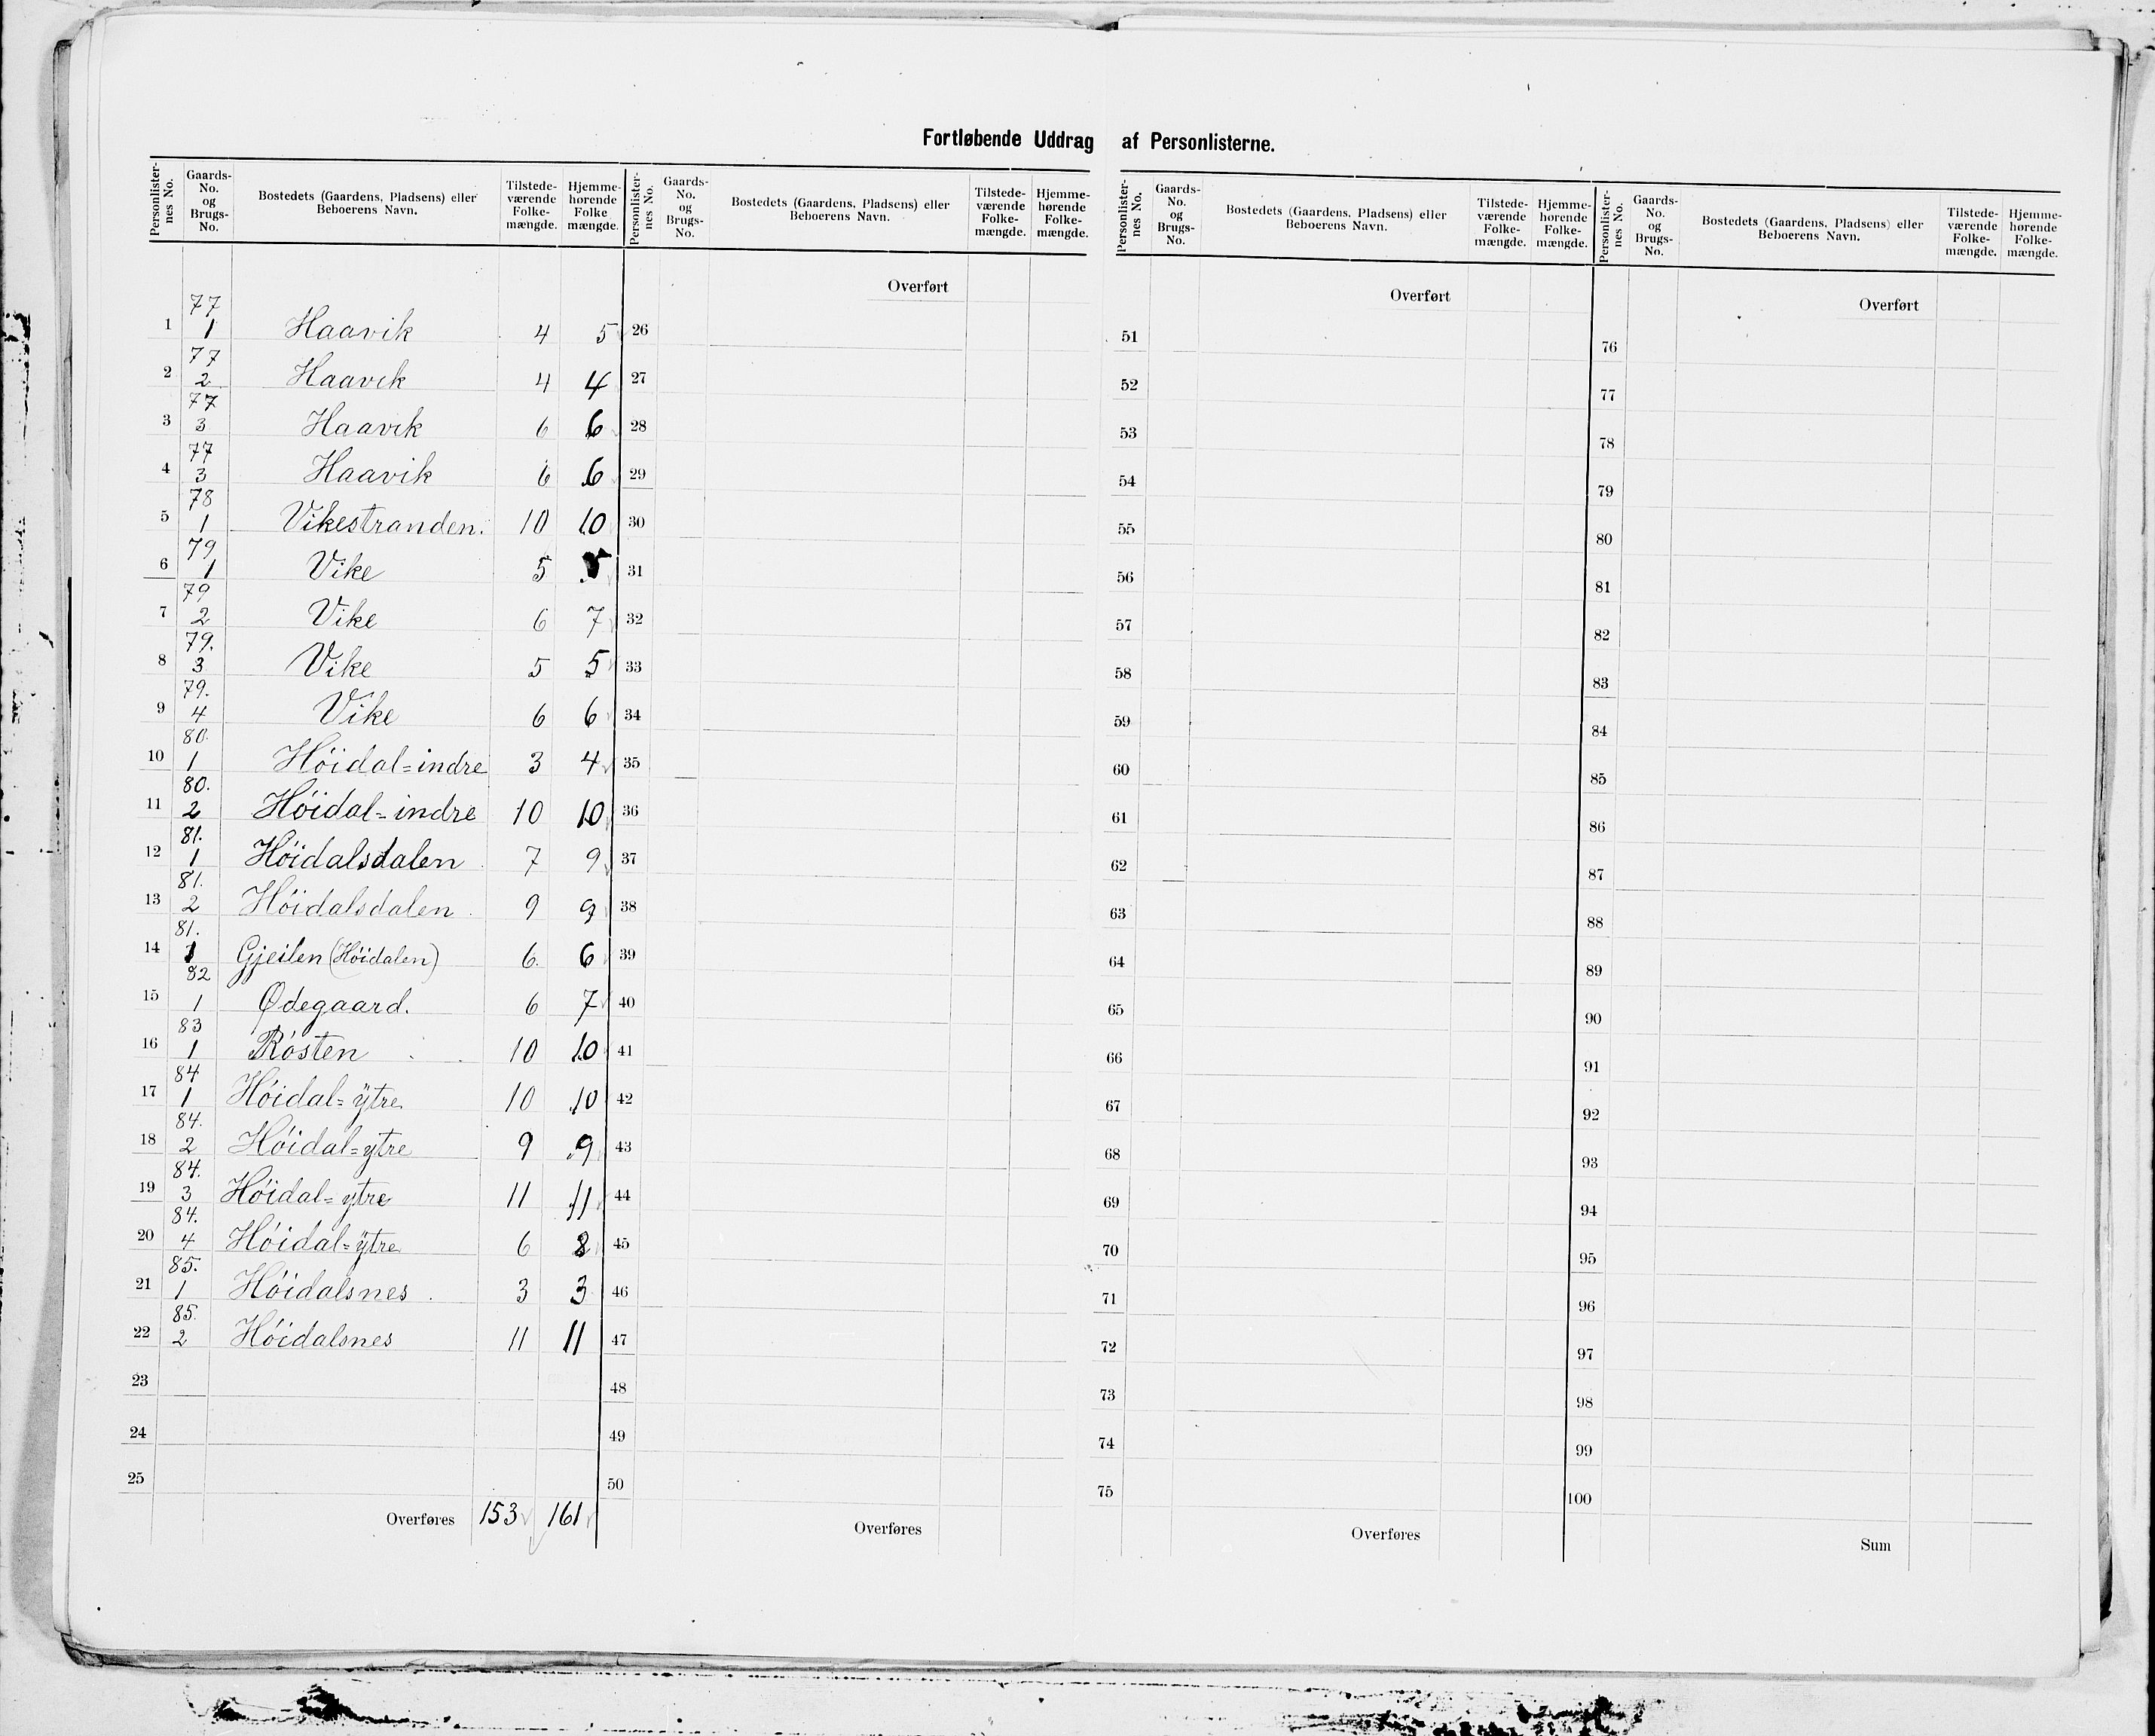 Fortløbende Uddrag af Personlisterne.
Personlister-nes No. | Gaards-No. og Brugs-No. | Bostedets (Gaardens, Pladsens) eller Beboerens Navn. | Tilstede-værende Folke-mængde. | Hjemme-hørende Folke mængde.
1 77/1 Haavik 4 5
2 77/2 Haavik 4 4
3 77/3 Haavik 6 6
4 77/3 Haavik 6 6
5 78/1 Vikestranden. 10 10
6 79/1 Vike 5 5
7 79/2 Vike 6 7
8 79./3 Vike 5 5
9 79./4 Vike 6 6
10 80./1 Höidal=indre 3 4
11 80./2 Höidal=indre 10 10
12 81./1 Höidalsdalen 7 9
13 81./2 Höidalsdalen 9 9
14 81./ Gjeilen (Höidalen) 6. 6
15 82/1 Ødegaard. 6 7
16 83/1 Rösten 10 10
17 84/1 Höidal=ÿtre 10 10
18 84./2 Höidal=ytre 9 9
19 84./3 Höidal=ytre 11 11
20 84./4 Höidal=ÿtre 6 8
21 85./1 Höidalsnes 3 3
22 85./2 Höidalsnes 11 11
23
24
25
Overføres 153 161
Personlister-nes No. | Gaards-No. og Brugs-No. | Bostedets (Gaardens, Pladsens) eller Beboerens Navn. | Tilstede-værende Folke-mængde. | Hjemme-hørende Folke-mængde.
Overført
26
27
28
29
30
31
32
33
34
35
36
37
38
39
40
41
42
43
44
45
46
47
48
49
50
Overføres
Personlister-nes No. | Gaards-No. og Brugs-No. | Bostedets (Gaardens, Pladsens) eller Beboerens Navn. | Tilstede-værende Folke-mængde. | Hjemme-hørende Folke-mængde.
Overført
51
52
53
54
55
56
57
58
59
60
61
62
63
64
65
66
67
68
69
70
71
72
73
74
75
Overføres
Personlister-nes No. | Gaards-No. og Brugs-No. | Bostedets (Gaardens, Pladsens) eller Beboerens Navn. | Tilstede-værende Folke-mængde. | Hjemme-hørende Folke-mængde.
Overført
76
77
78
79
80
81
82
83
84
85
86
87
88
89
90
91
92
93
94
95
96
97
98
99
100
Sum